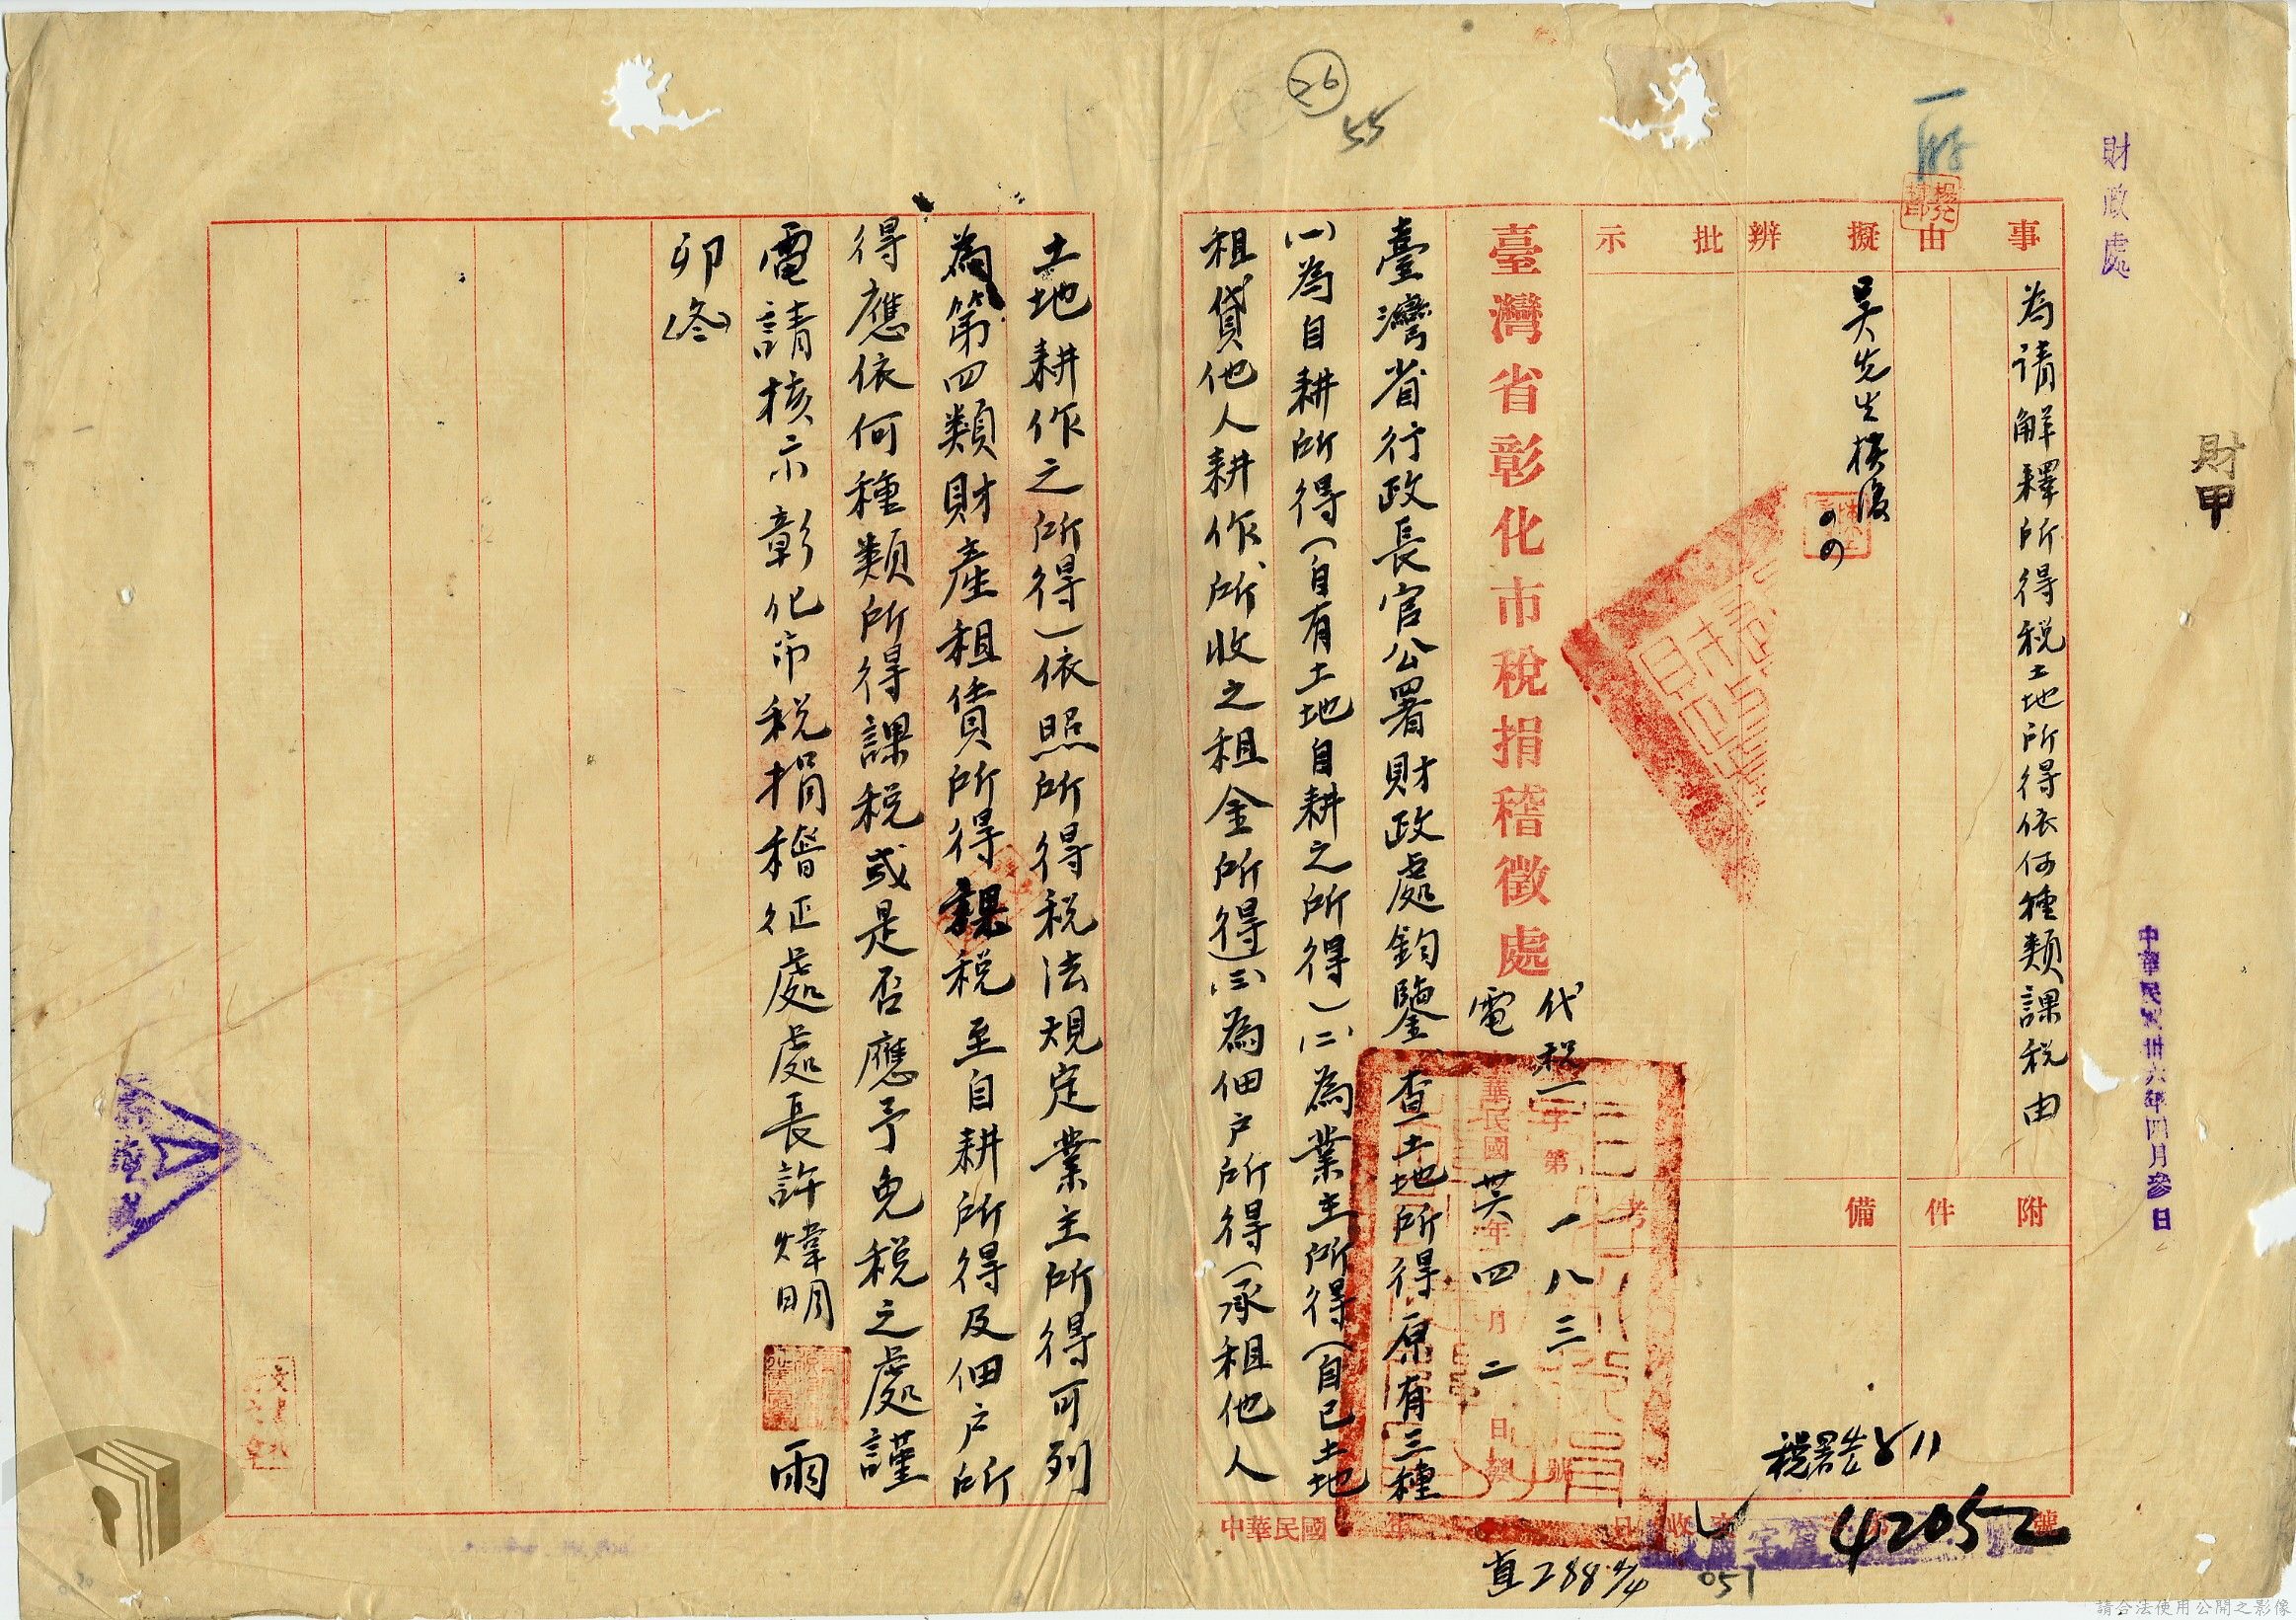 財政處
財甲
中華民國卅六年四月參日
26
55
事由
為请解釋所得税土地所得依何種類課税由
擬辨
吳先生核復
批示
附件
備考
臺灣省彰化市稅捐稽徵處
代電
税一字第一一八三號
中華民國卅六年四月二日發
臺灣省行政長官公署財政處鈞鑒查土地所得原有三種
(一)為自耕所得(自有土地自耕之所得)(二)為業主所得(自己土地
租貸他人耕作所收之租金所得)(三)為佃户所得(承租他人
土地耕作之所得)依照所得税法規定業主所得可列
為第四類財產租賃所得課税至自耕所得及佃户所
得應依何種類所得課税或是否應予免税之處謹
電請核示彰化市税捐稽征處處長許煒明
雨
卯(冬)
税署岦811
中華民國 年 月 日收文 字第 42052 號
直288 4/4
051
請合法使用公開之影像